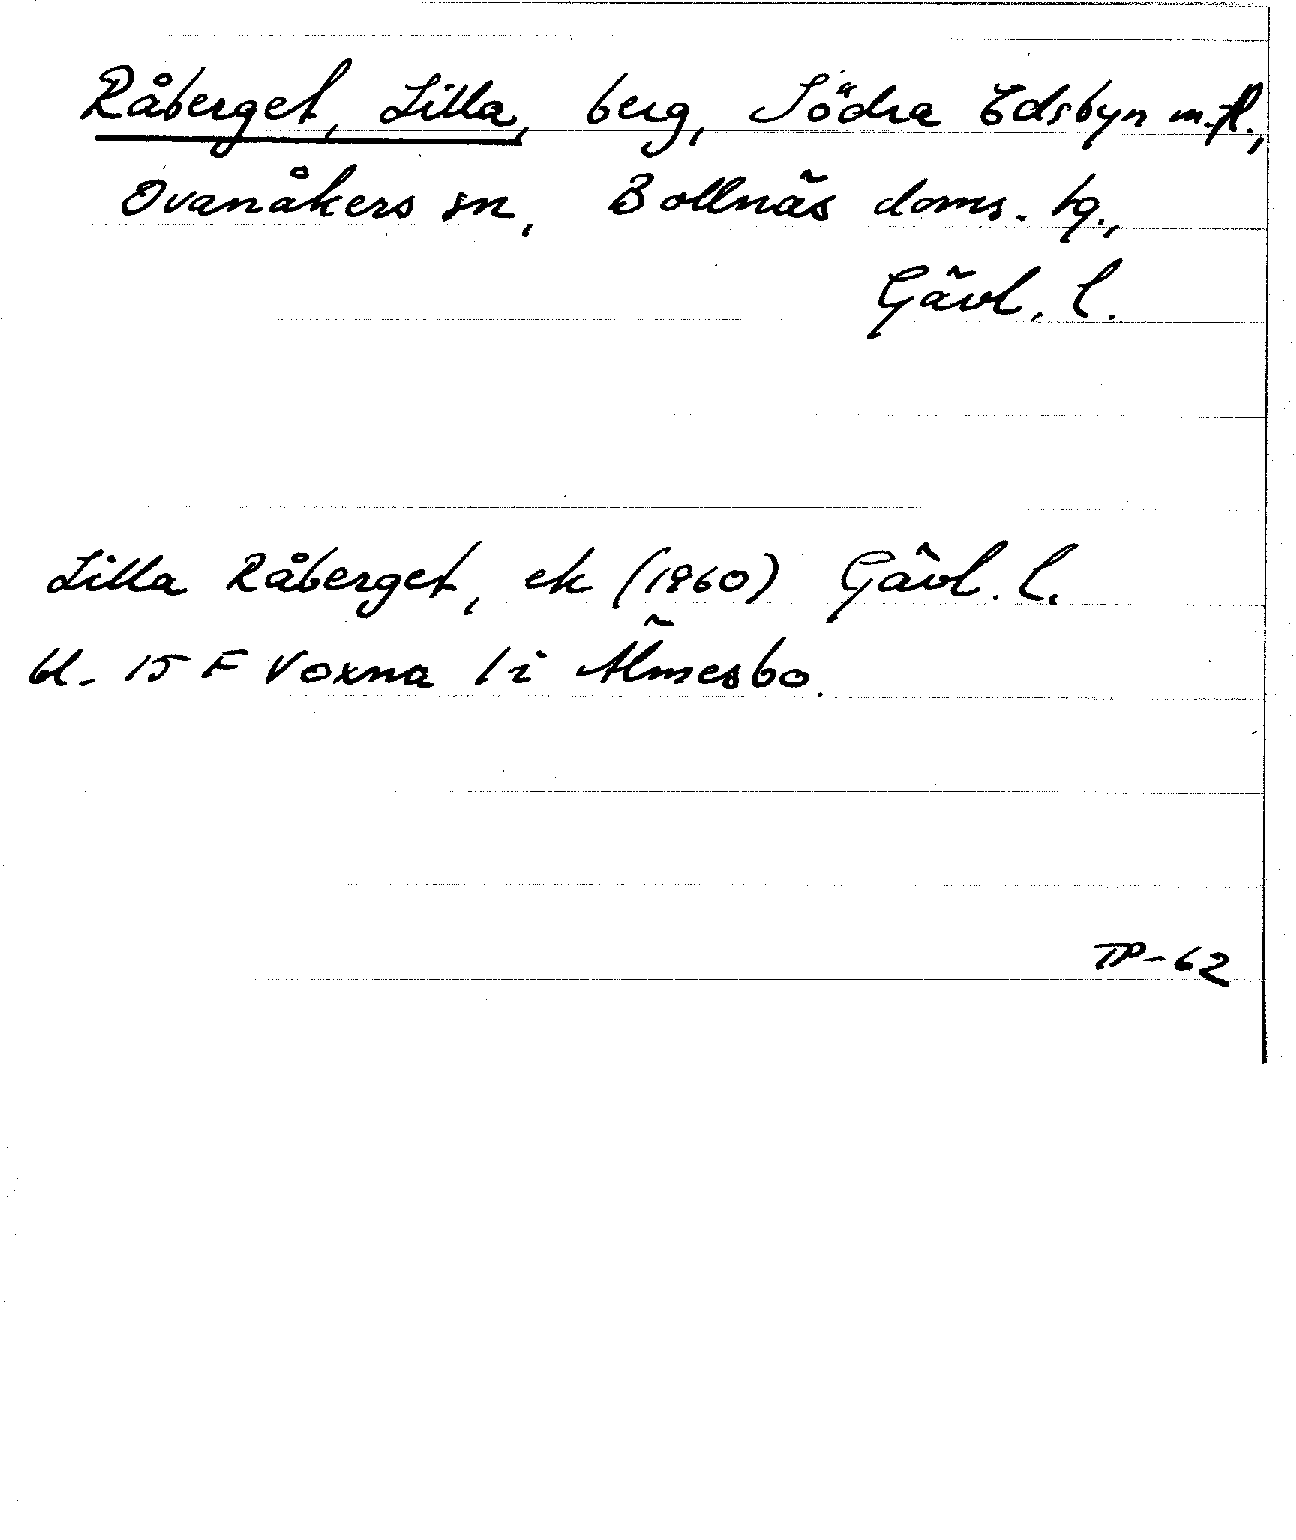 Råberget, Lilla, berg, Södra Edsbyn m.fl.,
Ovanåkers sn, Bollnäs doms. tg.,
Gävl. l.
Lilla Råberget, ek (1960) Gävl. l.
bl. 15 F Voxna 1 i Älmesbo.
TP-62